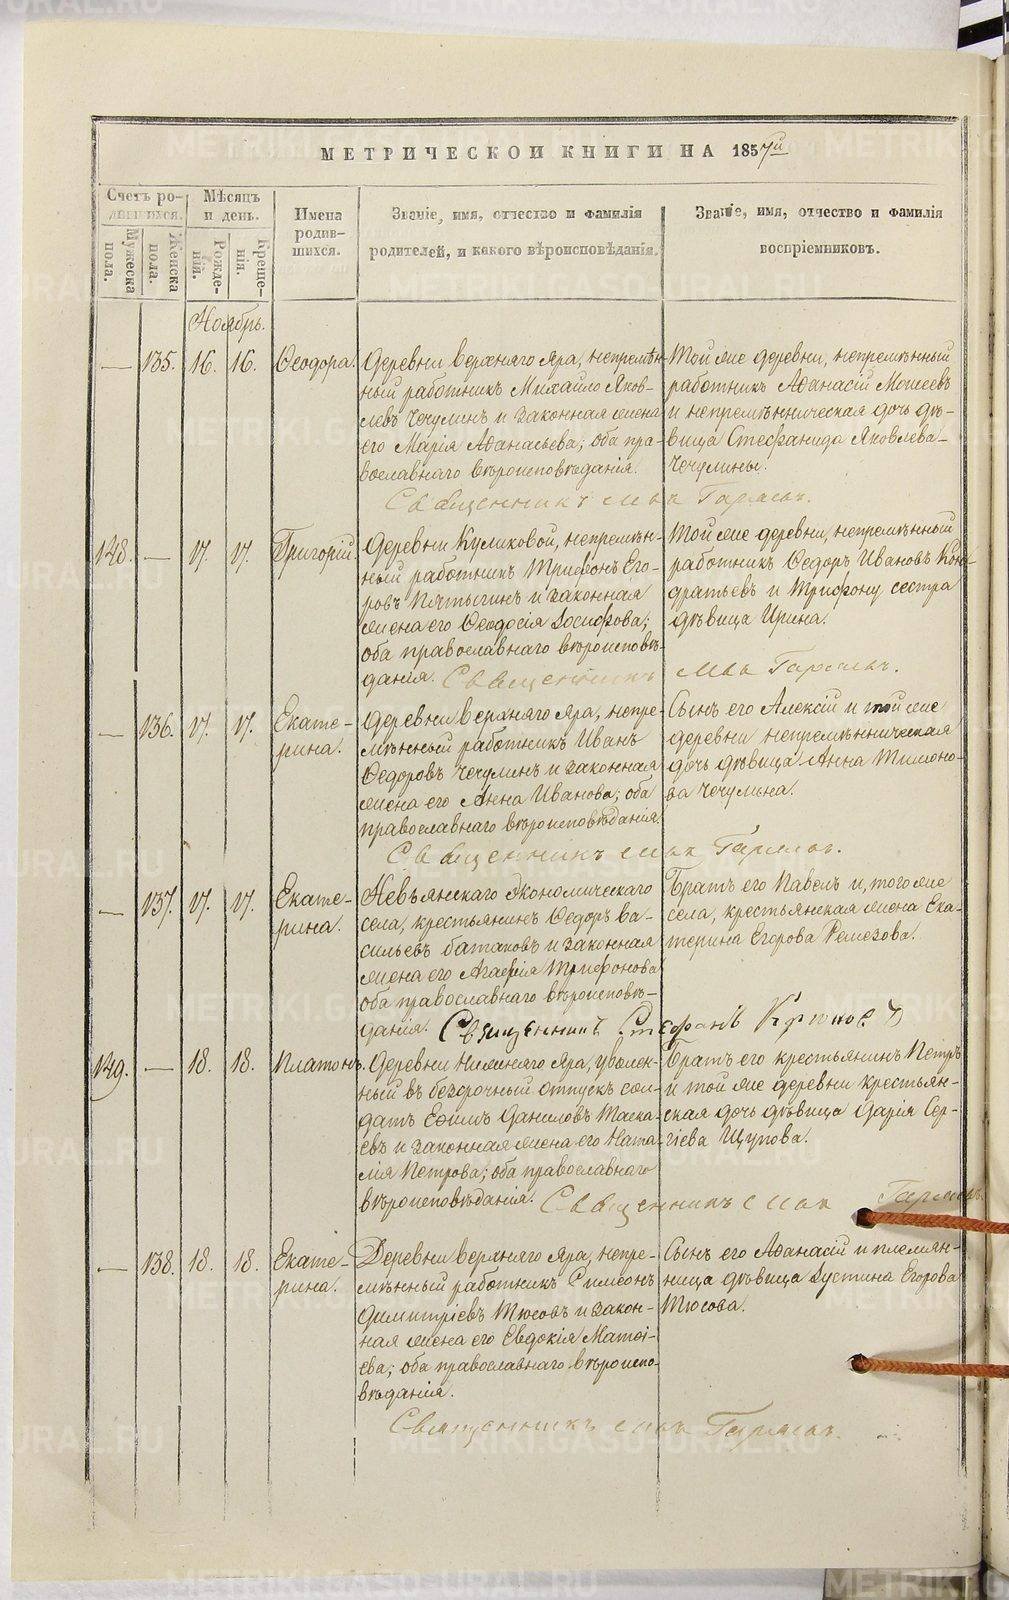 МЕТРИЧЕСКОЙ КНИГИ НА 1857й
Счетъ родившихся.
Мѣсяцъ и день.
Имена родившихся.
Званіе, имя, отчество и фамилія родителей, и какого вѣроисповѣданія.
Званіе, имя, отчество и фамилія воспріемниковъ.
Мужеска пола.
Женска пола.
Рожденія.
Крещенія.
Ноябрь.
— 135. 16. 16. Ѳеодора.
Деревни Верхняго Яра, непремѣн-
ный работникъ Михайло Яков-
левъ Чечулинъ и законная жена
его Марія Аѳанасьева; оба пра-
вославнаго вѣроисповѣданія.
Той же деревни, непремѣнный
работникъ Аѳанасій Моисеевъ
и непремѣнническая дочь дѣ-
вица Стефанида Яковлева
Чечулины.
Священникъ
148. — 17. 17. Григорій
Деревни Куликовой, непремѣн-
ный работникъ Трифонъ Его-
ровъ Пятыгинъ и законная
жена его Ѳеодосія Досифова;
оба православнаго вѣроисповѣ-
данія.
Той же деревни, непремѣнный
работникъ Ѳедоръ Ивановъ Кон-
дратьевъ и Трифону сестра
дѣвица Ирина.
Священникъ
— 136. 17. 17. Екате-
рина.
Деревни Верхняго Яра, непре-
мѣнный работникъ Иванъ
Ѳедоровъ Чечулинъ и законная
жена его Анна Иванова; оба
православнаго вѣроисповѣданія.
Сынъ его Алексій и той же
деревни непремѣнническая
дочь дѣвица Анна Тимоѳе-
ва Чечулина.
Священникъ
— 137. 17. 17. Екате-
рина.
Невьянскаго экономическаго
села, крестьянинъ Ѳедоръ Ва-
сильевъ Батаковъ и законная
жена его Агафія Трифонова
оба православнаго вѣроисповѣ-
данія.
Братъ его Павелъ и, того же
села, крестьянская жена Ека-
терина Егорова Ремезова.
Священникъ Стефанъ
149. — 18. 18. Платонъ.
Деревни Нижняго Яра, уволен-
ный въ безсрочный отпускъ сол-
датъ Ефимъ Даниловъ Таска-
евъ и законная жена его Ната-
лія Петрова; оба православнаго
вѣроисповѣданія.
Братъ его крестьянинъ Петръ
и той же деревни крестьян-
ская дочь дѣвица Дарія Сер-
гіева Щупова.
Священникъ
— 138. 18. 18. Екате-
рина.
Деревни Верхняго Яра, непре-
мѣнный работникъ Симеонъ
Димитріевъ Тюсовъ и закон-
ная жена его Евдокія Матѳі-
ева; оба православнаго вѣроиспо-
вѣданія.
Сынъ его Аѳанасій и племян-
ница дѣвица Іустина Егорова
Тюсова.
Священникъ
METRIKI.GASO-URAL.RU